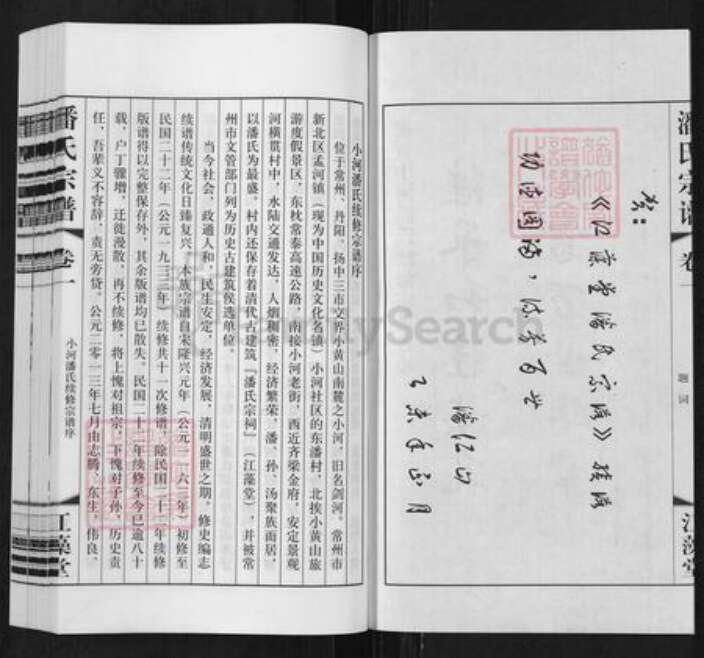 潘氏宗谱
卷一
江藻堂
贺：
《江藻堂潘氏宗谱》续修
功德圆满，流芳百世
潘仁山
乙未年正月
小河潘氏续修宗谱序
位于常州、丹阳、扬中三市交界小黄山南麓之小河，旧名剑河。常州市
新北区孟河镇（现为中国历史文化名镇）小河社区的东潘村，北挨小黄山旅
游度假景区，东枕常泰高速公路，南接小河老街，西近齐梁金府，安定景观
河横贯村中，水陆交通发达，人烟稠密，经济繁荣，潘、孙、汤聚族而居，
以潘氏为最盛。村内还保存着清代古建筑『潘氏宗祠』（江藻堂），并被常
州市文管部门列为历史古建筑侯选单位。
当今社会，政通人和，民生安定，经济发展，清明盛世之期。修史编志
续谱传统文化日臻复兴。本族宗谱自宋隆兴元年（公元一一六三年）初修至
民国二十二年（公元一九三三年）续修共十一次修谱，除民国二十二年续修
版谱得以完整保存外，其余版谱均已散失。民国二十二年续修至今已逾八十
载，户丁骤增，迁徙漫散，再不续修，将上愧对祖宗，下愧对子孙，历史责
任，吾辈义不容辞，责无旁贷。公元二零一三年七月由志鹏、东生、伟良、
潘氏宗谱
卷一
小河潘氏续修宗谱序
江藻堂
FamilySearch